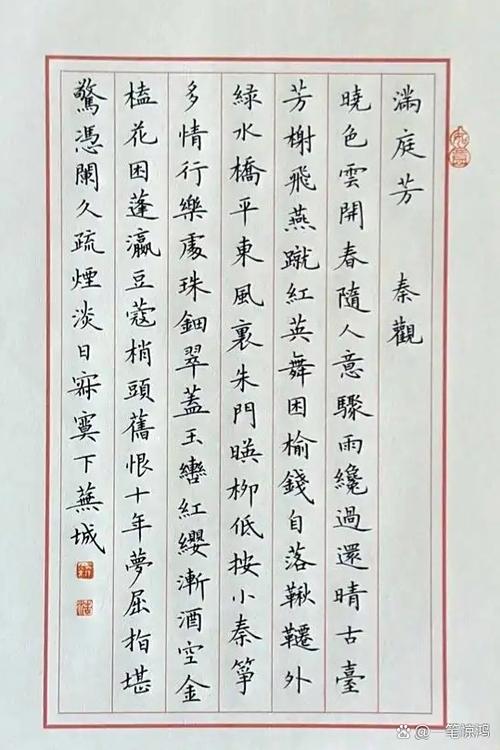 滿庭芳 秦觀
曉色雲開春隨人意驟雨纔過還晴古臺
芳榭飛燕蹴紅英舞困榆錢自落鞦韆外
綠水橋平東風裏朱門暎柳低按小秦箏
多情行樂處珠鈿翠蓋玉轡紅纓漸酒空金
榼花困蓬瀛豆蔻梢頭舊恨十年夢屈指堪
驚憑闌久疏煙淡日寂寞下蕪城
@一笔惊鸿